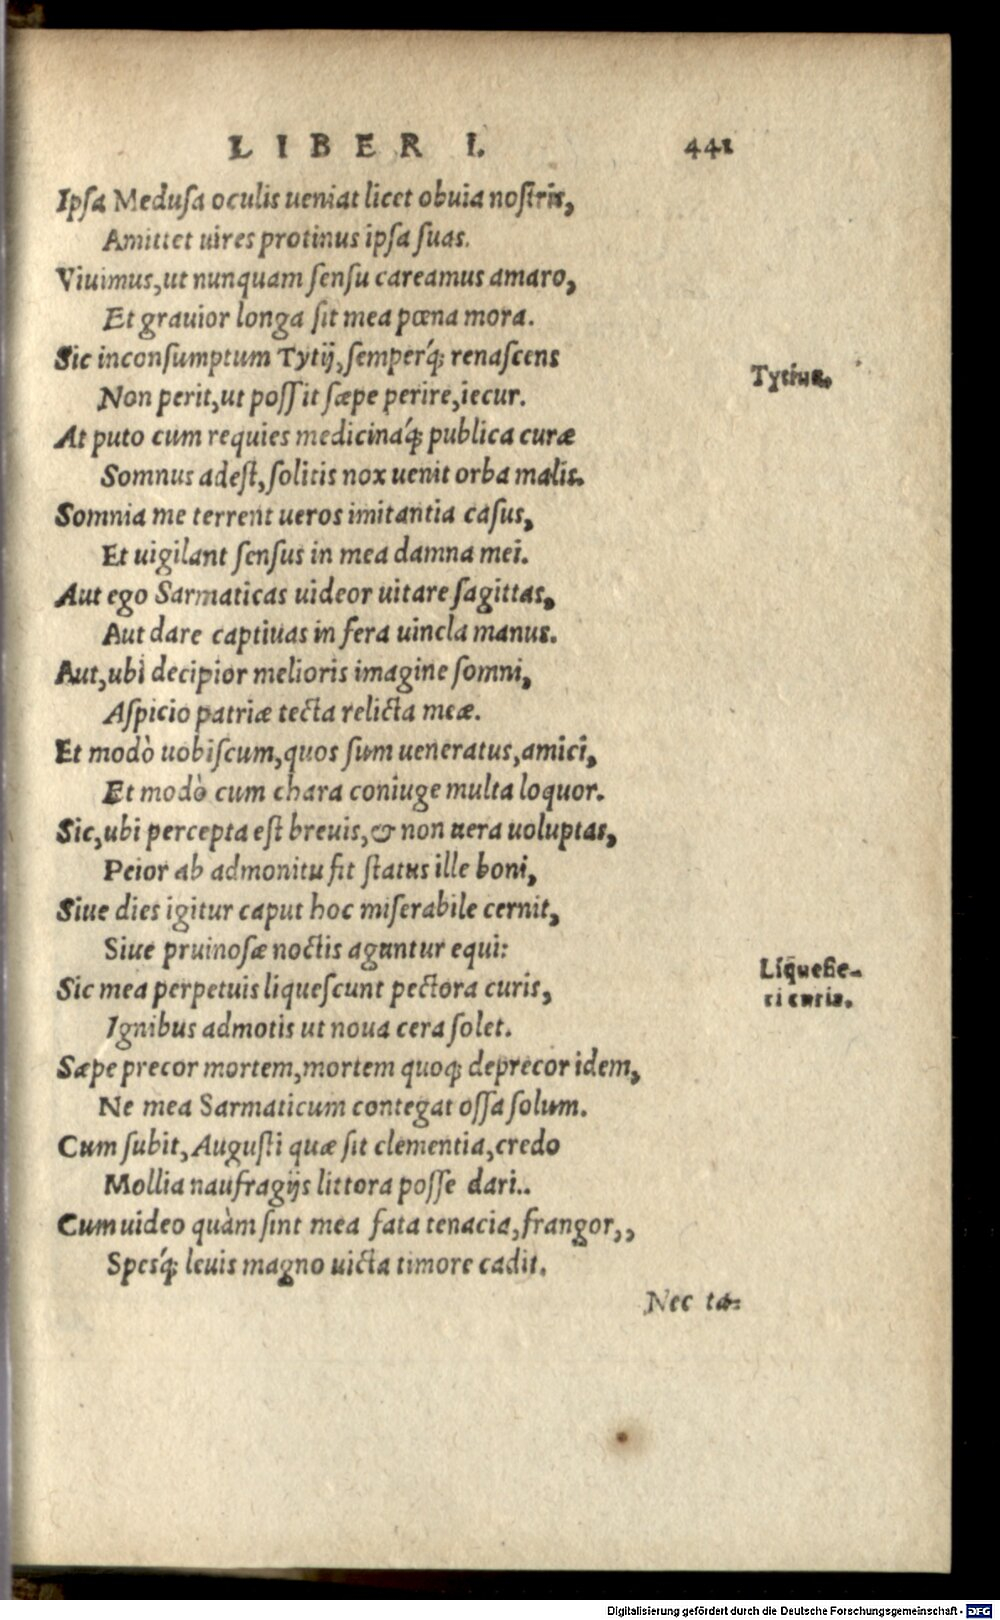 LIBER I. 441
Ipsa Medusa oculis ueniat licet obuia nostris,
Amittet uires protinus ipsa suas.
Viuimus, ut nunquam sensu careamus amaro,
Et grauior longa sit mea pœna mora.
Sic inconsumptum Tytij, semperq́; renascens
Non perit, ut possit sæpe perire, iecur.
Tytius.
At puto cum requies medicinaq́; publica curæ
Somnus adest, solitis nox uenit orba malis.
Somnia me terrent ueros imitantia casus,
Et uigilant sensus in mea damna mei.
Aut ego Sarmaticas uideor uitare sagittas,
Aut dare captiuas in fera uincla manus.
Aut, ubi decipior melioris imagine somni,
Aspicio patriæ tecta relicta meæ.
Et modò uobiscum, quos sum ueneratus, amici,
Et modò cum chara coniuge multa loquor.
Sic, ubi percepta est breuis, & non uera uoluptas,
Peior ab admonitu fit status ille boni,
Siue dies igitur caput hoc miserabile cernit,
Siue pruinosæ noctis aguntur equi:
Sic mea perpetuis liquescunt pectora curis,
Liquefie-
ri curis.
Ignibus admotis ut noua cera solet.
Sæpe precor mortem, mortem quoq; deprecor idem,
Ne mea Sarmaticum contegat ossa solum.
Cum subit, Augusti quæ sit clementia, credo
Mollia naufragijs littora posse dari..
Cum uideo quàm sint mea fata tenacia, frangor,,
Spesq́; leuis magno uicta timore cadit.
Nec ta-
Digitalisierung gefördert durch die Deutsche Forschungsgemeinschaft - DFG